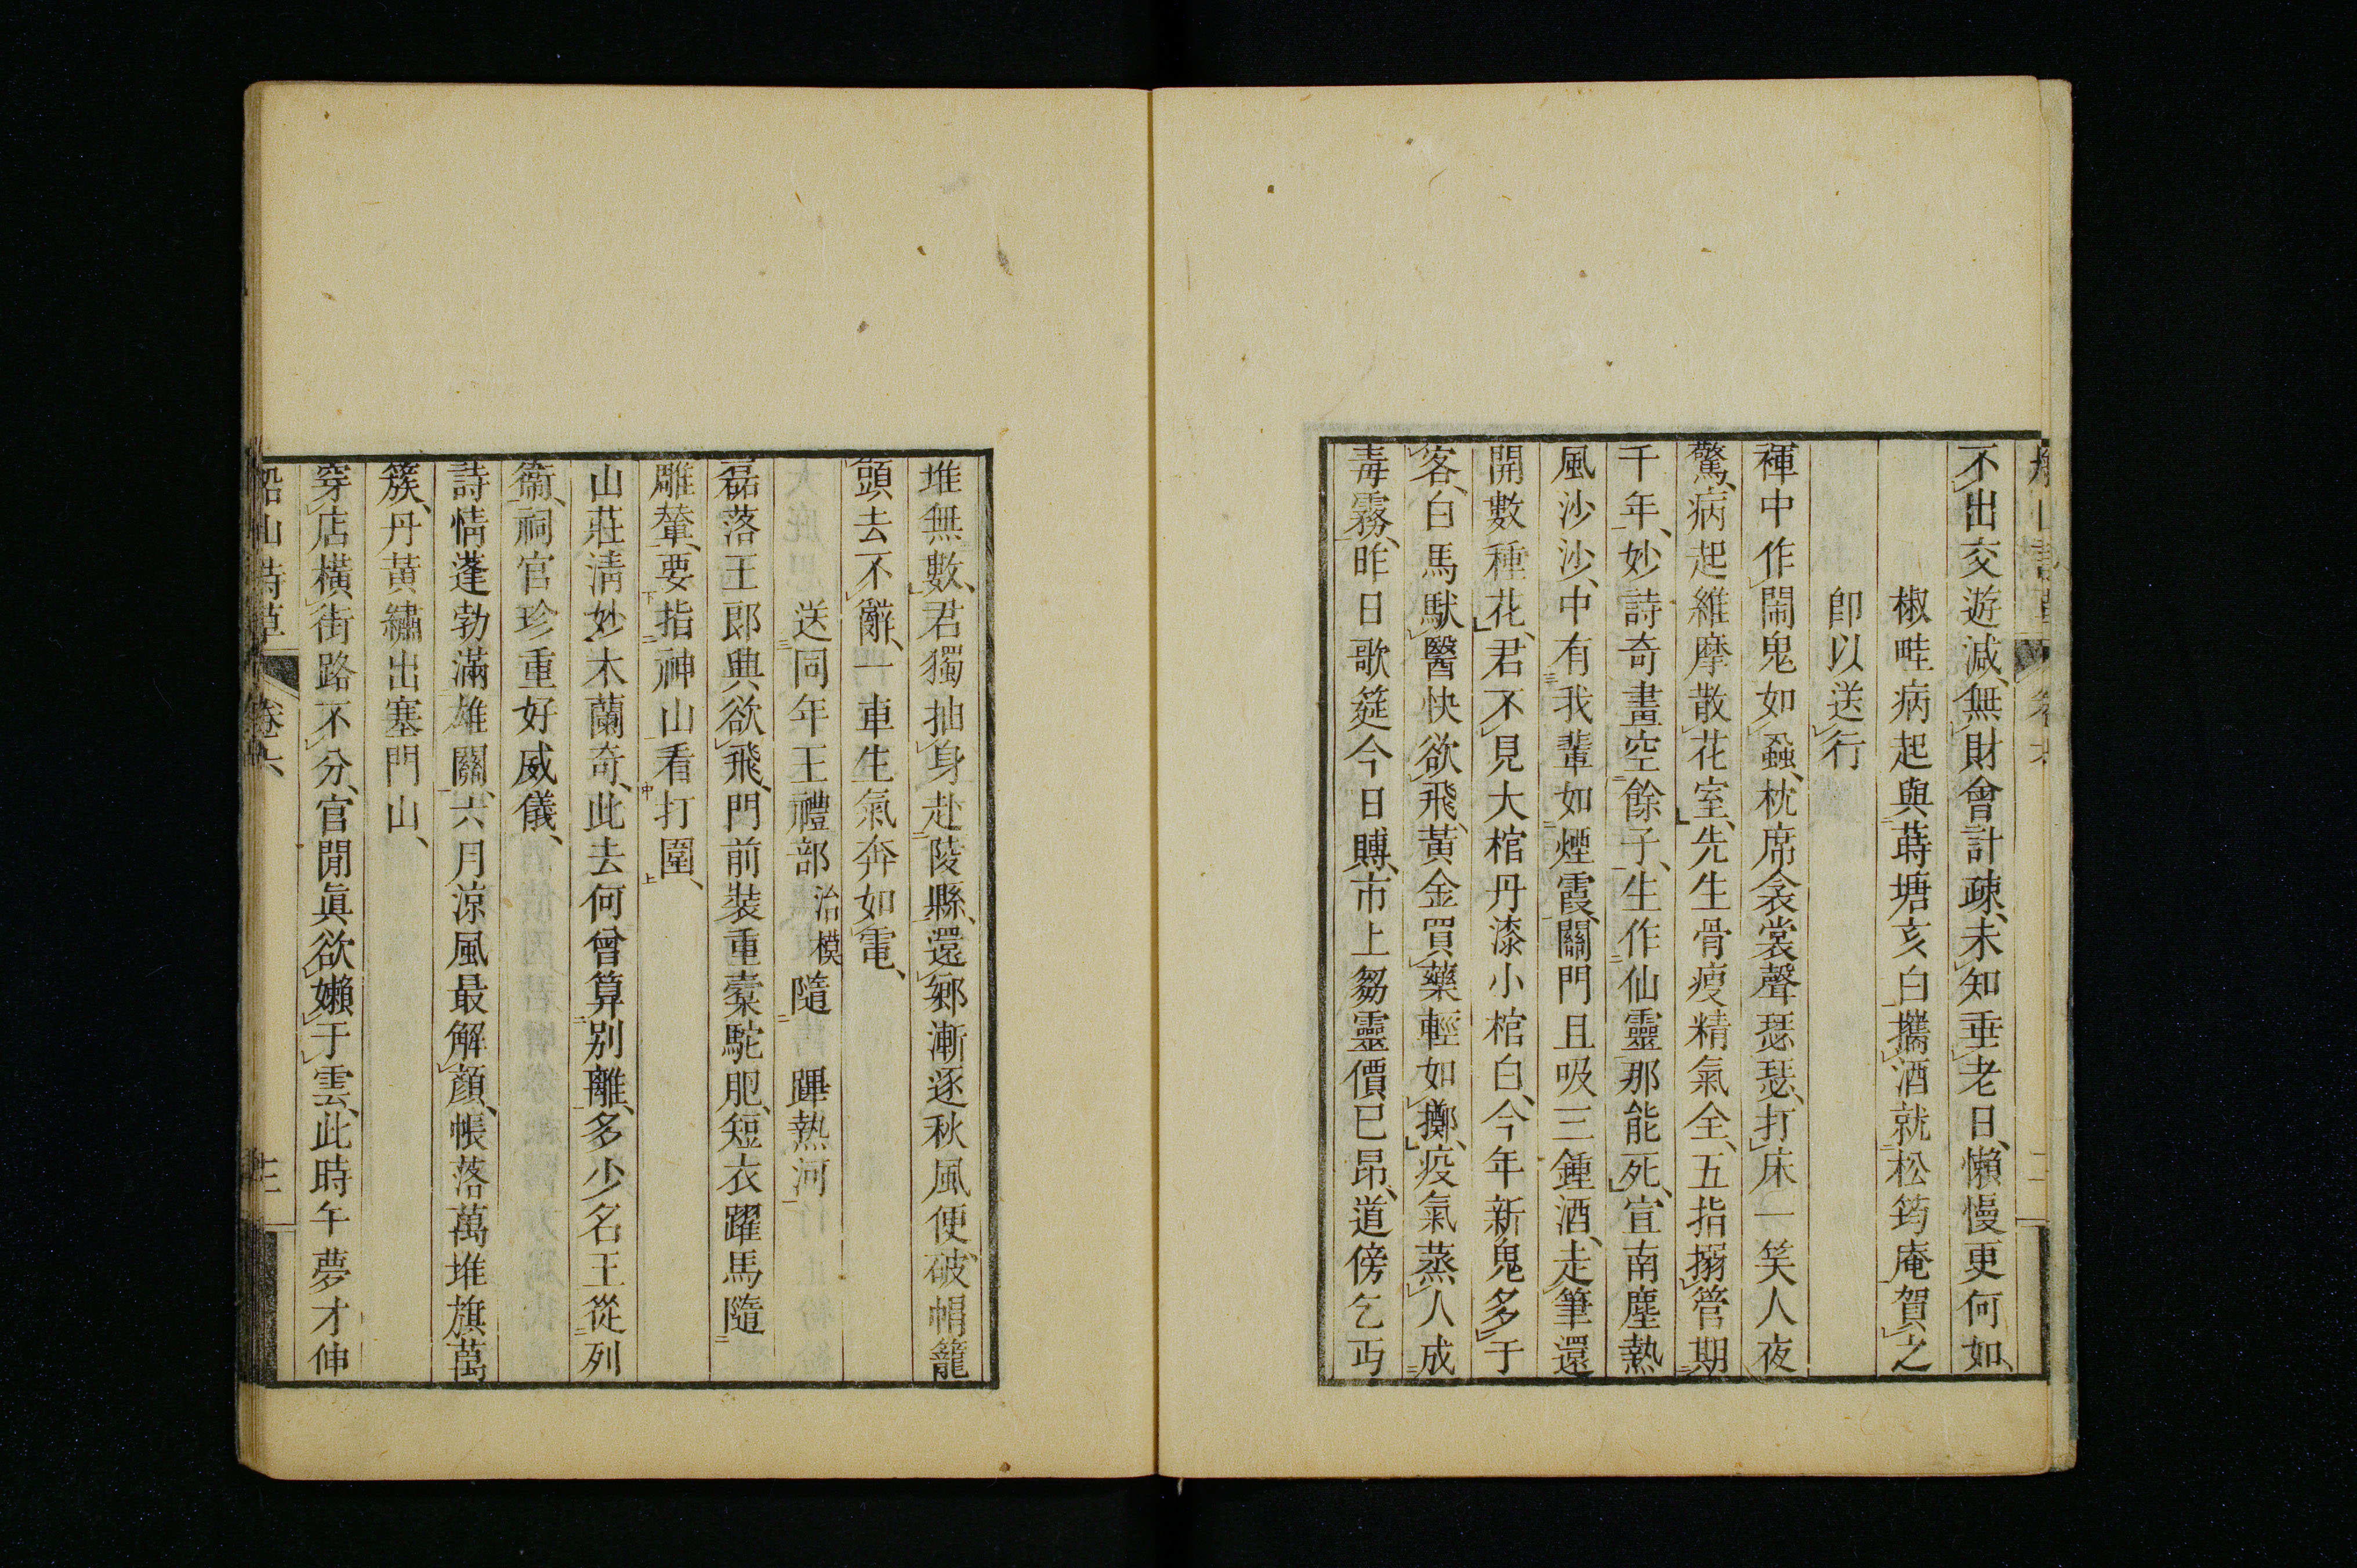 不出交遊減、無財會計疎、未知垂老日、懶慢更何如、
椒畦病起與蒔塘亥白攜酒就松筠庵賀之
卽以送行
褌中作鬧鬼如蝨、枕席衾裳聲瑟瑟、打床一笑人夜
驚、病起維摩散花室、先生骨瘦精氣全、五指搦管期
千年、妙詩奇畫空餘子、生作仙靈那能死、宣南塵熱
風沙沙、中有我輩如煙霞、關門且吸三鍾酒、走筆還
開數種花、君不見大棺丹漆小棺白、今年新鬼多于
客、白馬馱醫快欲飛、黃金買藥輕如擲、疫氣蒸人成
毒霧、昨日歌筵今日賻、市上芻靈價已昂、道傍乞丐
堆無數、君獨抽身赴陵縣、還鄉漸逐秋風便、破帽籠
頭去不辭、一車生氣奔如電、
送同年王禮部治模隨 蹕熱河
磊落王郎興欲飛、門前裝重橐駝肥、短衣躍馬隨
雕輦、要指神山看打圍、
山莊淸妙木蘭奇、此去何曾算別離、多少名王從列
衞、祠官珍重好威儀、
詩情蓬勃滿雄關、六月涼風最解顏、帳落萬堆旗萬
簇、丹黃繡出塞門山、
穿店橫街路不分、官閒眞欲嬾于雲、此時午夢才伸
船山詩草 卷六 三